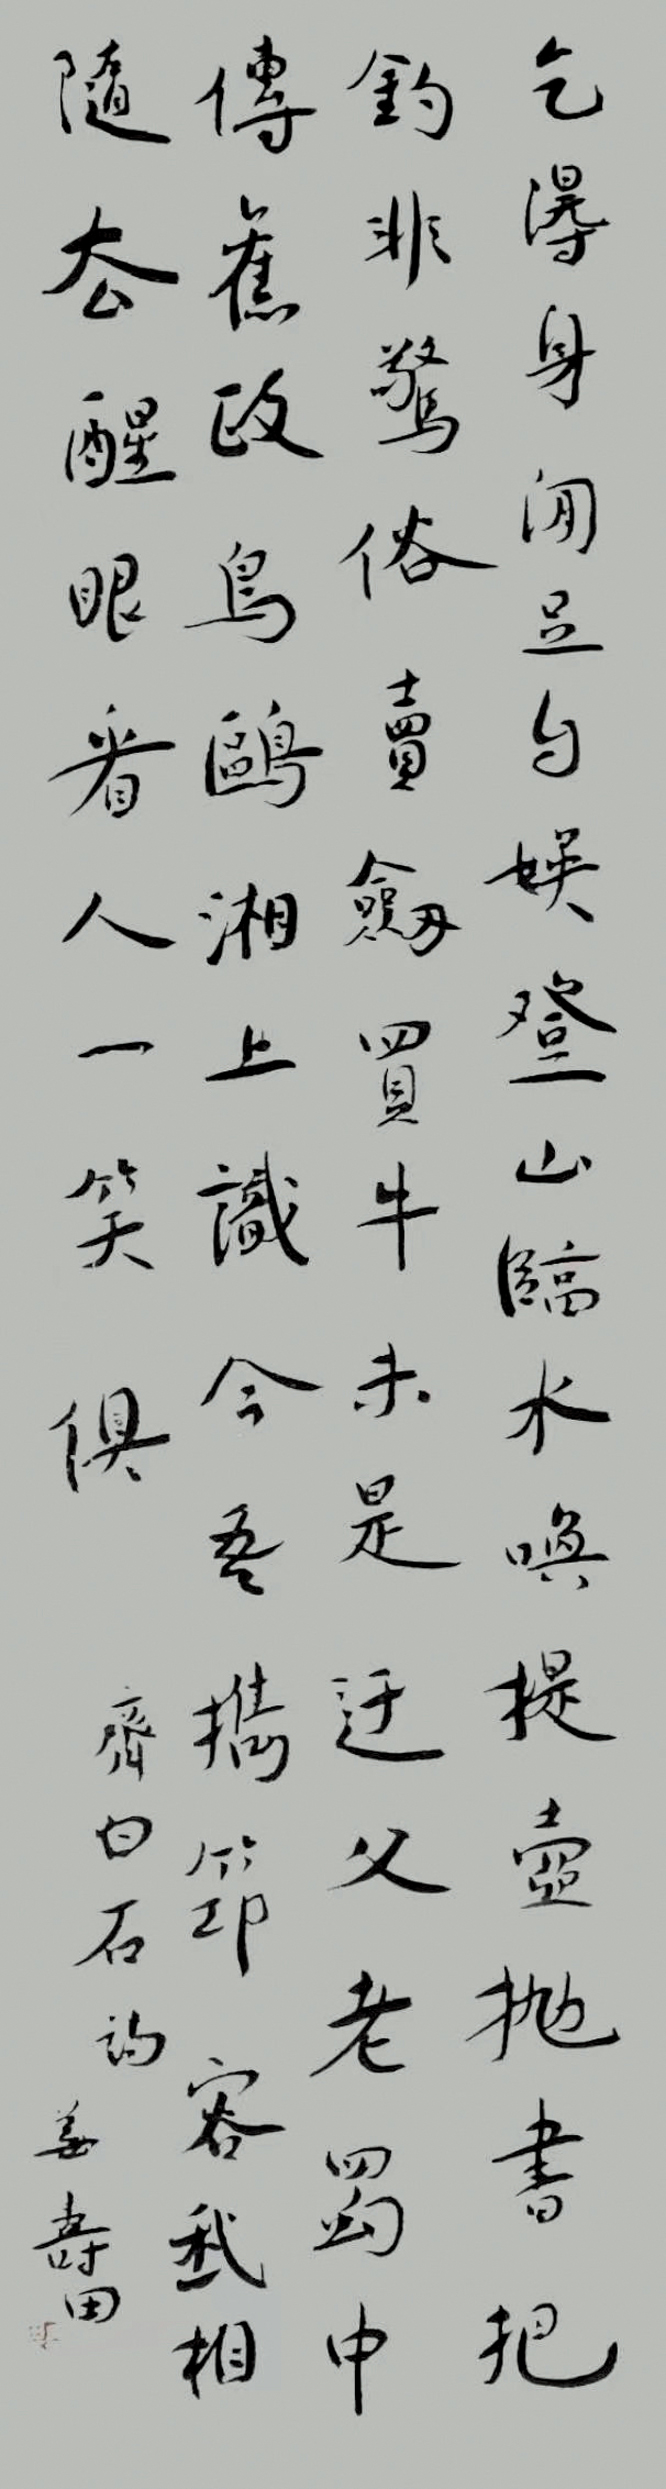 乞得身閒足自娛登山臨水喚提壺拋書把
釣非驚俗賣劍買牛未是迂父老蜀中
傳舊政鳥鷗湘上識今吾攜筇容我相
隨去醒眼看人一笑俱
齊白石詞
姜壽田